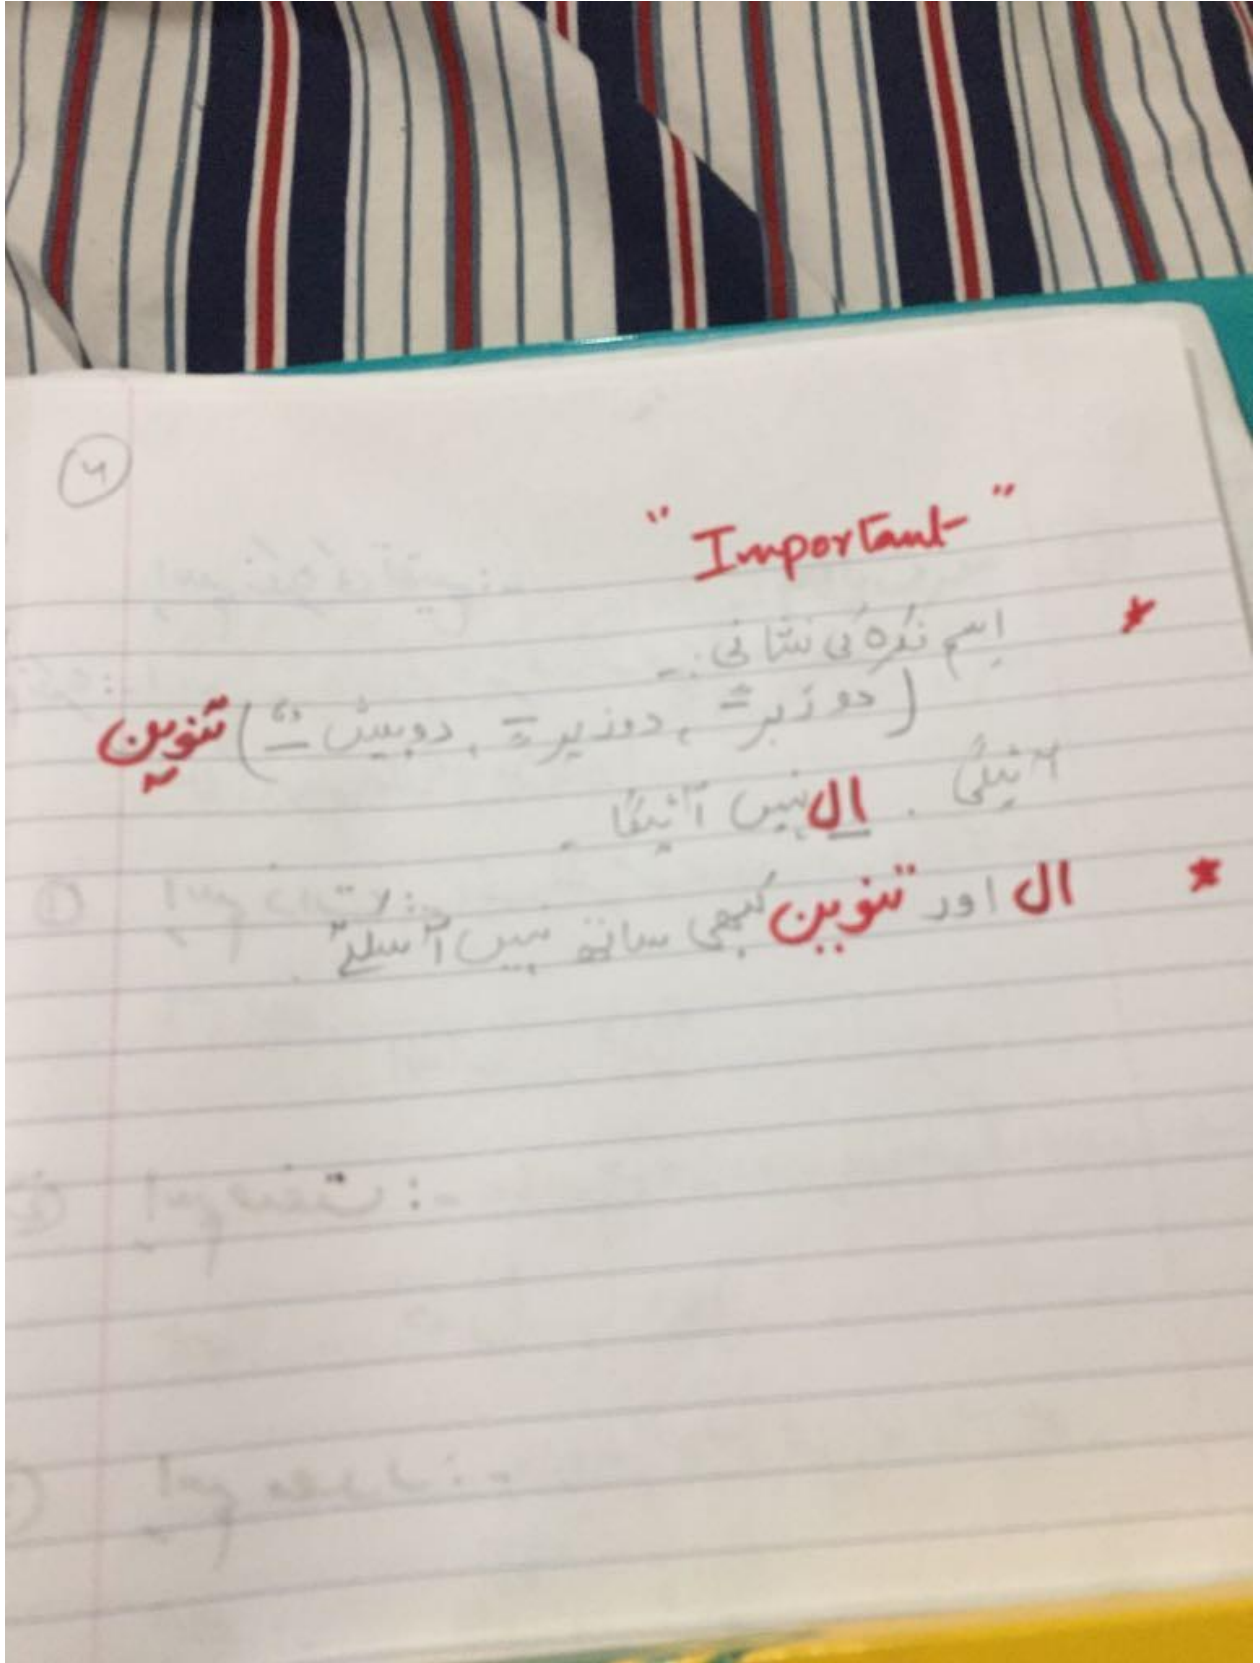 ۴
" Important "
* اِسم نکرہ کی نشانی:-
(دو زبر ً ، دو زیر ٍ ، دو پیش ٌ) تنوین
آئیگی . ال نہیں آئیگا .
* ال اور تنوین کبھی ساتھ نہیں آ سکتے .